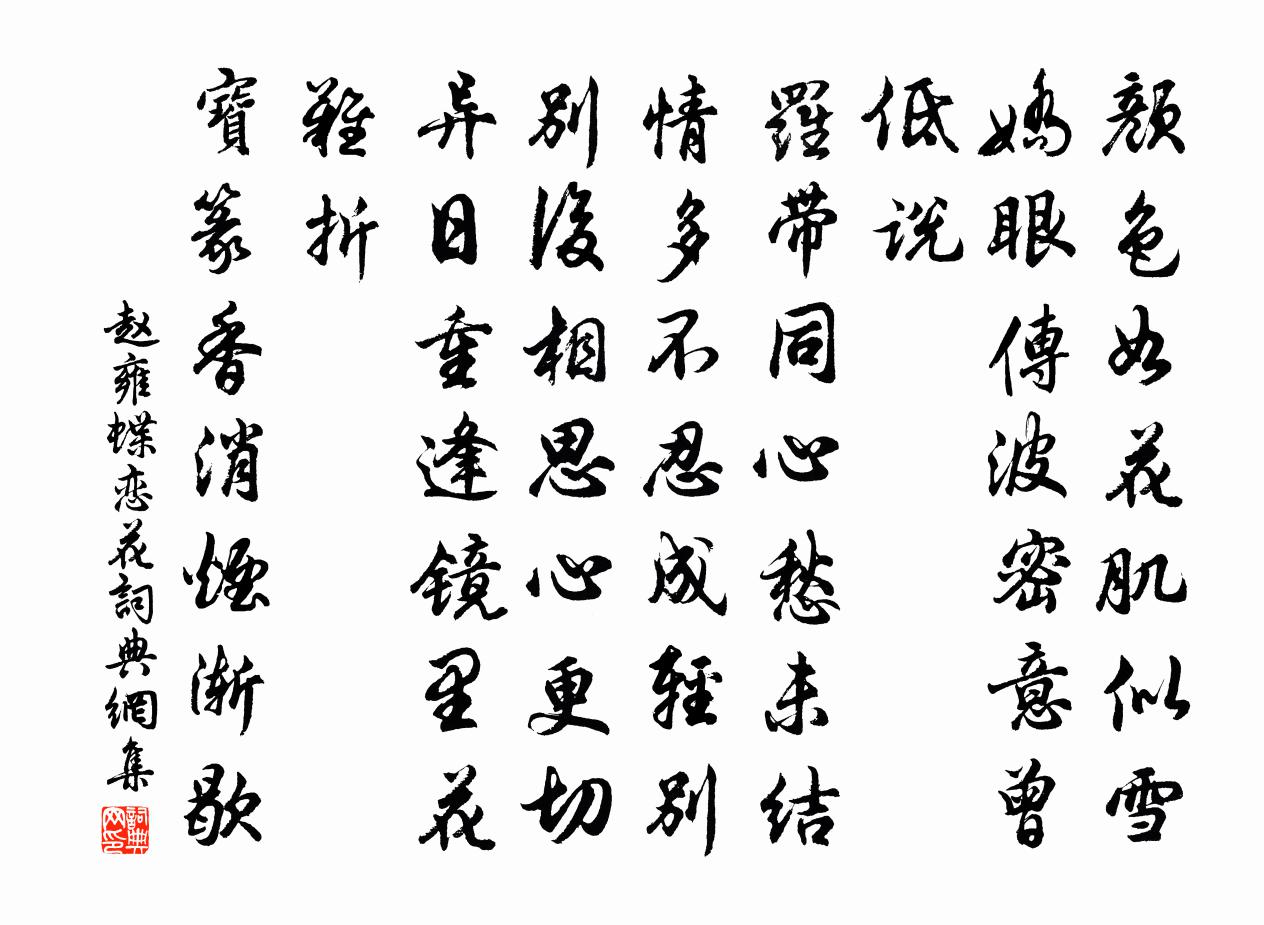 顏色如花肌似雪
嬌眼傳波密意曾
低说
羅带同心愁未结
情多不忍成輕别
别後相思心更切
异日重逢镜里花
難折
寶篆香消煙渐歇
赵雍蝶恋花詞典網集
詞典网印